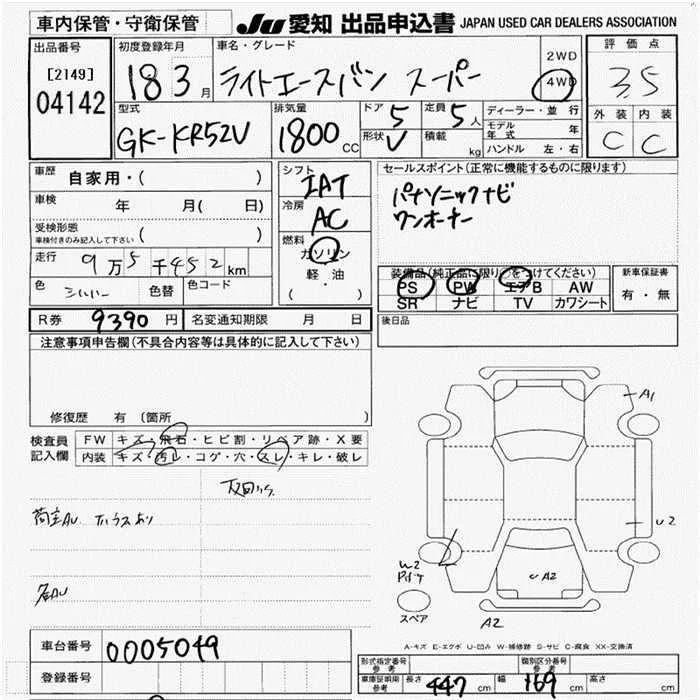 車内保管・守衛保管
JU 愛知 出品申込書 JAPAN USED CAR DEALERS ASSOCIATION
出品番号
[2149]
04142
初度登録年月
18 3 月
車名・グレード
ライトエースバン スーパー
2WD
4WD
評価点
3.5
外装 内装
C C
型式
GK-KR52V
排気量
1800 CC
ドア 5
形状 V
定員 5 人
積載 kg
ディーラー・並行
モデル年式 年
ハンドル 左・右
車歴 自家用・( )
車検 年 月( 日)
受検形態
車検付きのみ記入して下さい ( )
走行 9万5千452km
色 シルバー 色替 色コード
シフト
IAT
冷房
AC
燃料
ガソリン
軽・油
( ・ )
セールスポイント(正常に機能するものに限ります)
パナソニックナビ
ワンオーナー
装備品(純正品に限り○をつけてください)
PS PW エアB AW
SR ナビ TV カワシート
新車保証書
有・無
R券 9390 円 名変通知期限 月 日
後日品
注意事項申告欄(不具合内容等は具体的に記入して下さい)
修復歴 有 〔箇所 〕
検査員記入欄
FW キズ・飛石・ヒビ割・リペア跡・X要
内装 キズ・汚レ・コゲ・穴・スレ・キレ・破レ
A1
U2
W2
A2
A2
スペア
A-キズ E-エクボ U-凹み W-補修跡 S-サビ C-腐食 XX-交換済
車台番号 0005049
登録番号
形式指定番号 参考
類別区分番号 参考
車庫証明用 参考 長さ 447 cm 幅 169 cm 高さ cm